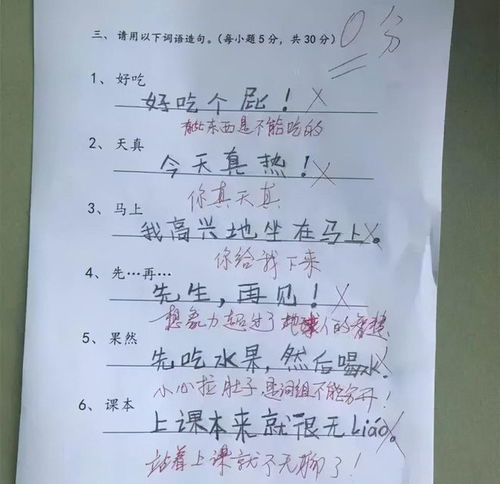 三、请用以下词语造句。(每小题5分，共30分) 0分
1、好吃
好吃个屁！
有些东西是不能吃的
2、天真
今天真热！
你真天真
3、马上
我高兴地坐在马上。
你给我下来
4、先…再…
先生，再见！
想象力超过了地球人的智慧
5、果然
先吃水果，然后喝水。
小心拉肚子 是词组不能分开！
6、课本
上课本来就很无liáo。
站着上课就不无聊了！